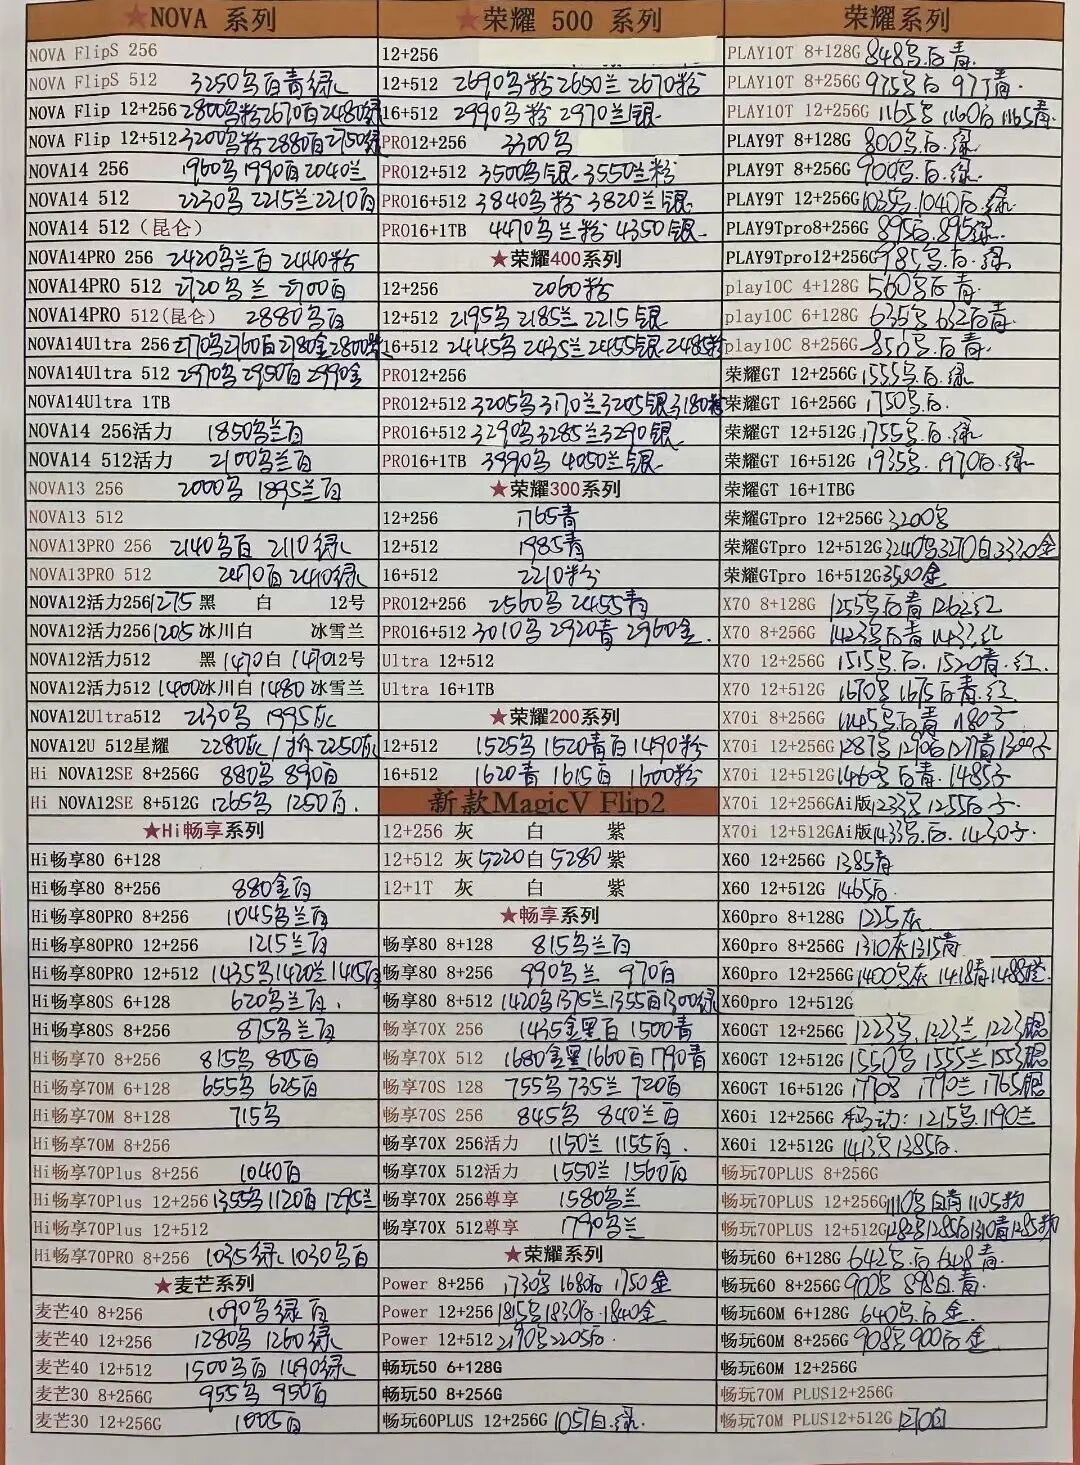 ★NOVA 系列
NOVA FlipS 256
NOVA FlipS 512 3250乌白青绿
NOVA Flip 12+256 2800乌粉2670白2480绿
NOVA Flip 12+512 3200乌粉2880白2750绿
NOVA14 256 1960乌1990白2040兰
NOVA14 512 2230乌 2215兰2210白
NOVA14 512（昆仑）
NOVA14PRO 256 2420乌兰白 2440粉
NOVA14PRO 512 2720乌兰 2700白
NOVA14PRO 512(昆仑) 2880乌白
NOVA14Ultra 256 2770乌2760白2780金2800
NOVA14Ultra 512 2970乌 2950白 2990金
NOVA14Ultra 1TB
NOVA14 256活力 1850乌兰白
NOVA14 512活力 2100乌兰白
NOVA13 256 2000乌 1895兰白
NOVA13 512
NOVA13PRO 256 2140乌白 2110绿
NOVA13PRO 512 2470白2410绿
NOVA12活力256 1275黑 白 12号
NOVA12活力256 1205冰川白 冰雪兰
NOVA12活力512 黑1470白1470 12号
NOVA12活力512 1400冰川白1480冰雪兰
NOVA12Ultra512 2130乌 1995灰
NOVA12U 512星耀 2280灰/拆2250灰
Hi NOVA12SE 8+256G 880乌890白
Hi NOVA12SE 8+512G 1265乌 1250白.
★Hi畅享系列
Hi畅享80 6+128
Hi畅享80 8+256 880金白
Hi畅享80PRO 8+256 1045乌兰白
Hi畅享80PRO 12+256 1215兰白
Hi畅享80PRO 12+512 1435乌1420兰1415白
Hi畅享80S 6+128 620乌兰白.
Hi畅享80S 8+256 875乌兰白
Hi畅享70 8+256 815乌 805白
Hi畅享70M 6+128 655乌 625白
Hi畅享70M 8+128 715乌
Hi畅享70M 8+256
Hi畅享70Plus 8+256 1040白
Hi畅享70Plus 12+256 1355乌1120白1295兰
Hi畅享70Plus 12+512
Hi畅享70PRO 8+256 1035绿1030乌白
★麦芒系列
麦芒40 8+256 1090乌绿白
麦芒40 12+256 1280乌 1260绿
麦芒40 12+512 1500乌白1490绿
麦芒30 8+256G 955乌 950白
麦芒30 12+256G 1005白
★荣耀 500 系列
12+256
12+512 2690乌粉2650兰 2670粉
16+512 2990乌粉 2970兰银
PRO12+256 3300乌
PRO12+512 3500乌银.3550兰粉
PRO16+512 3840乌粉 3820兰银
PRO16+1TB 4470乌兰粉 4350银
★荣耀400系列
12+256 2060粉
12+512 2195乌 2185兰 2215银
16+512 2445乌 2435兰2455银2485粉
PRO12+256
PRO12+512 3205乌3170兰3205银3180粉
PRO16+512 3290乌3285兰3290银
PRO16+1TB 3990乌4050兰银
★荣耀300系列
12+256 1765青
12+512 1985青
16+512 2210粉
PRO12+256 2560乌2455青
PRO16+512 3010乌 2920青 2960金.
Ultra 12+512
Ultra 16+1TB
★荣耀200系列
12+512 1525乌1520青白1490粉
16+512 1620青 1615白 1600粉
新款MagicV Flip2
12+256 灰 白 紫
12+512 灰5220白5280紫
12+1T 灰 白 紫
★畅享系列
畅享80 8+128 815乌兰白
畅享80 8+256 990乌兰 970白
畅享80 8+512 1420乌1375兰1355白1300绿
畅享70X 256 1435金黑白1500青
畅享70X 512 1680金黑1660白1790青
畅享70S 128 755乌735兰 720白
畅享70S 256 845乌 840兰白
畅享70X 256活力 1150兰 1155白.
畅享70X 512活力 1550兰 1560白
畅享70X 256尊享 1580乌兰
畅享70X 512尊享 1790乌兰
★荣耀系列
Power 8+256 1730乌1680白1750金
Power 12+256 1815乌1830白.1840金
Power 12+512 2190乌2205白.
畅玩50 6+128G
畅玩50 8+256G
畅玩60PLUS 12+256G 1057白.绿.
荣耀系列
PLAY10T 8+128G 848乌白青.
PLAY10T 8+256G 975乌白 977青
PLAY10T 12+256G 1165乌 1160白 1165青.
PLAY9T 8+128G 800乌白.绿
PLAY9T 8+256G 900乌.白.绿.
PLAY9T 12+256G 1035乌.1040白.绿.
PLAY9Tpro8+256G 895白.895绿.
PLAY9Tpro12+256G 985乌白.绿
play10C 4+128G 560乌白青.
play10C 6+128G 635乌 632白青
play10C 8+256G 850乌.白青.
荣耀GT 12+256G 1555乌.白.绿
荣耀GT 16+256G 1750乌白.
荣耀GT 12+512G 1755乌白.绿
荣耀GT 16+512G 1935乌.1970白.绿
荣耀GT 16+1TBG
荣耀GTpro 12+256G 3200乌
荣耀GTpro 12+512G 3240乌3270白3330金
荣耀GTpro 16+512G 3500金
X70 8+128G 1255乌白青1262红
X70 8+256G 1423乌白青1433红
X70 12+256G 1515乌白.1520青.红.
X70 12+512G 1670乌 1675白青.红
X70i 8+256G 1145乌白青1180子
X70i 12+256G 1287乌1290白1277青1300子
X70i 12+512G 1460乌白青.1485子
X70i 12+256GAi版1233乌1255白子
X70i 12+512GAi版1433乌白.1430子.
X60 12+256G 1385青
X60 12+512G 1465白.
X60pro 8+128G 1225灰
X60pro 8+256G 1310灰1315青
X60pro 12+256G 1400乌灰 1418青1488橙
X60pro 12+512G
X60GT 12+256G 1223乌.1223兰.1223
X60GT 12+512G 1550乌 1555兰1553
X60GT 16+512G 1770乌 1790兰1765
X60i 12+256G 移动:1215乌.1190兰
X60i 12+512G 1413乌1385白.
畅玩70PLUS 8+256G
畅玩70PLUS 12+256G 1110乌白青1105
畅玩70PLUS 12+512G 1282乌1285白1310青1285
畅玩60 6+128G 642乌.白 648青.
畅玩60 8+256G 900乌 898白.青.
畅玩60M 6+128G 640乌.白金.
畅玩60M 8+256G 908乌900白金
畅玩60M 12+256G
畅玩70M PLUS12+256G
畅玩70M PLUS12+512G 1270白